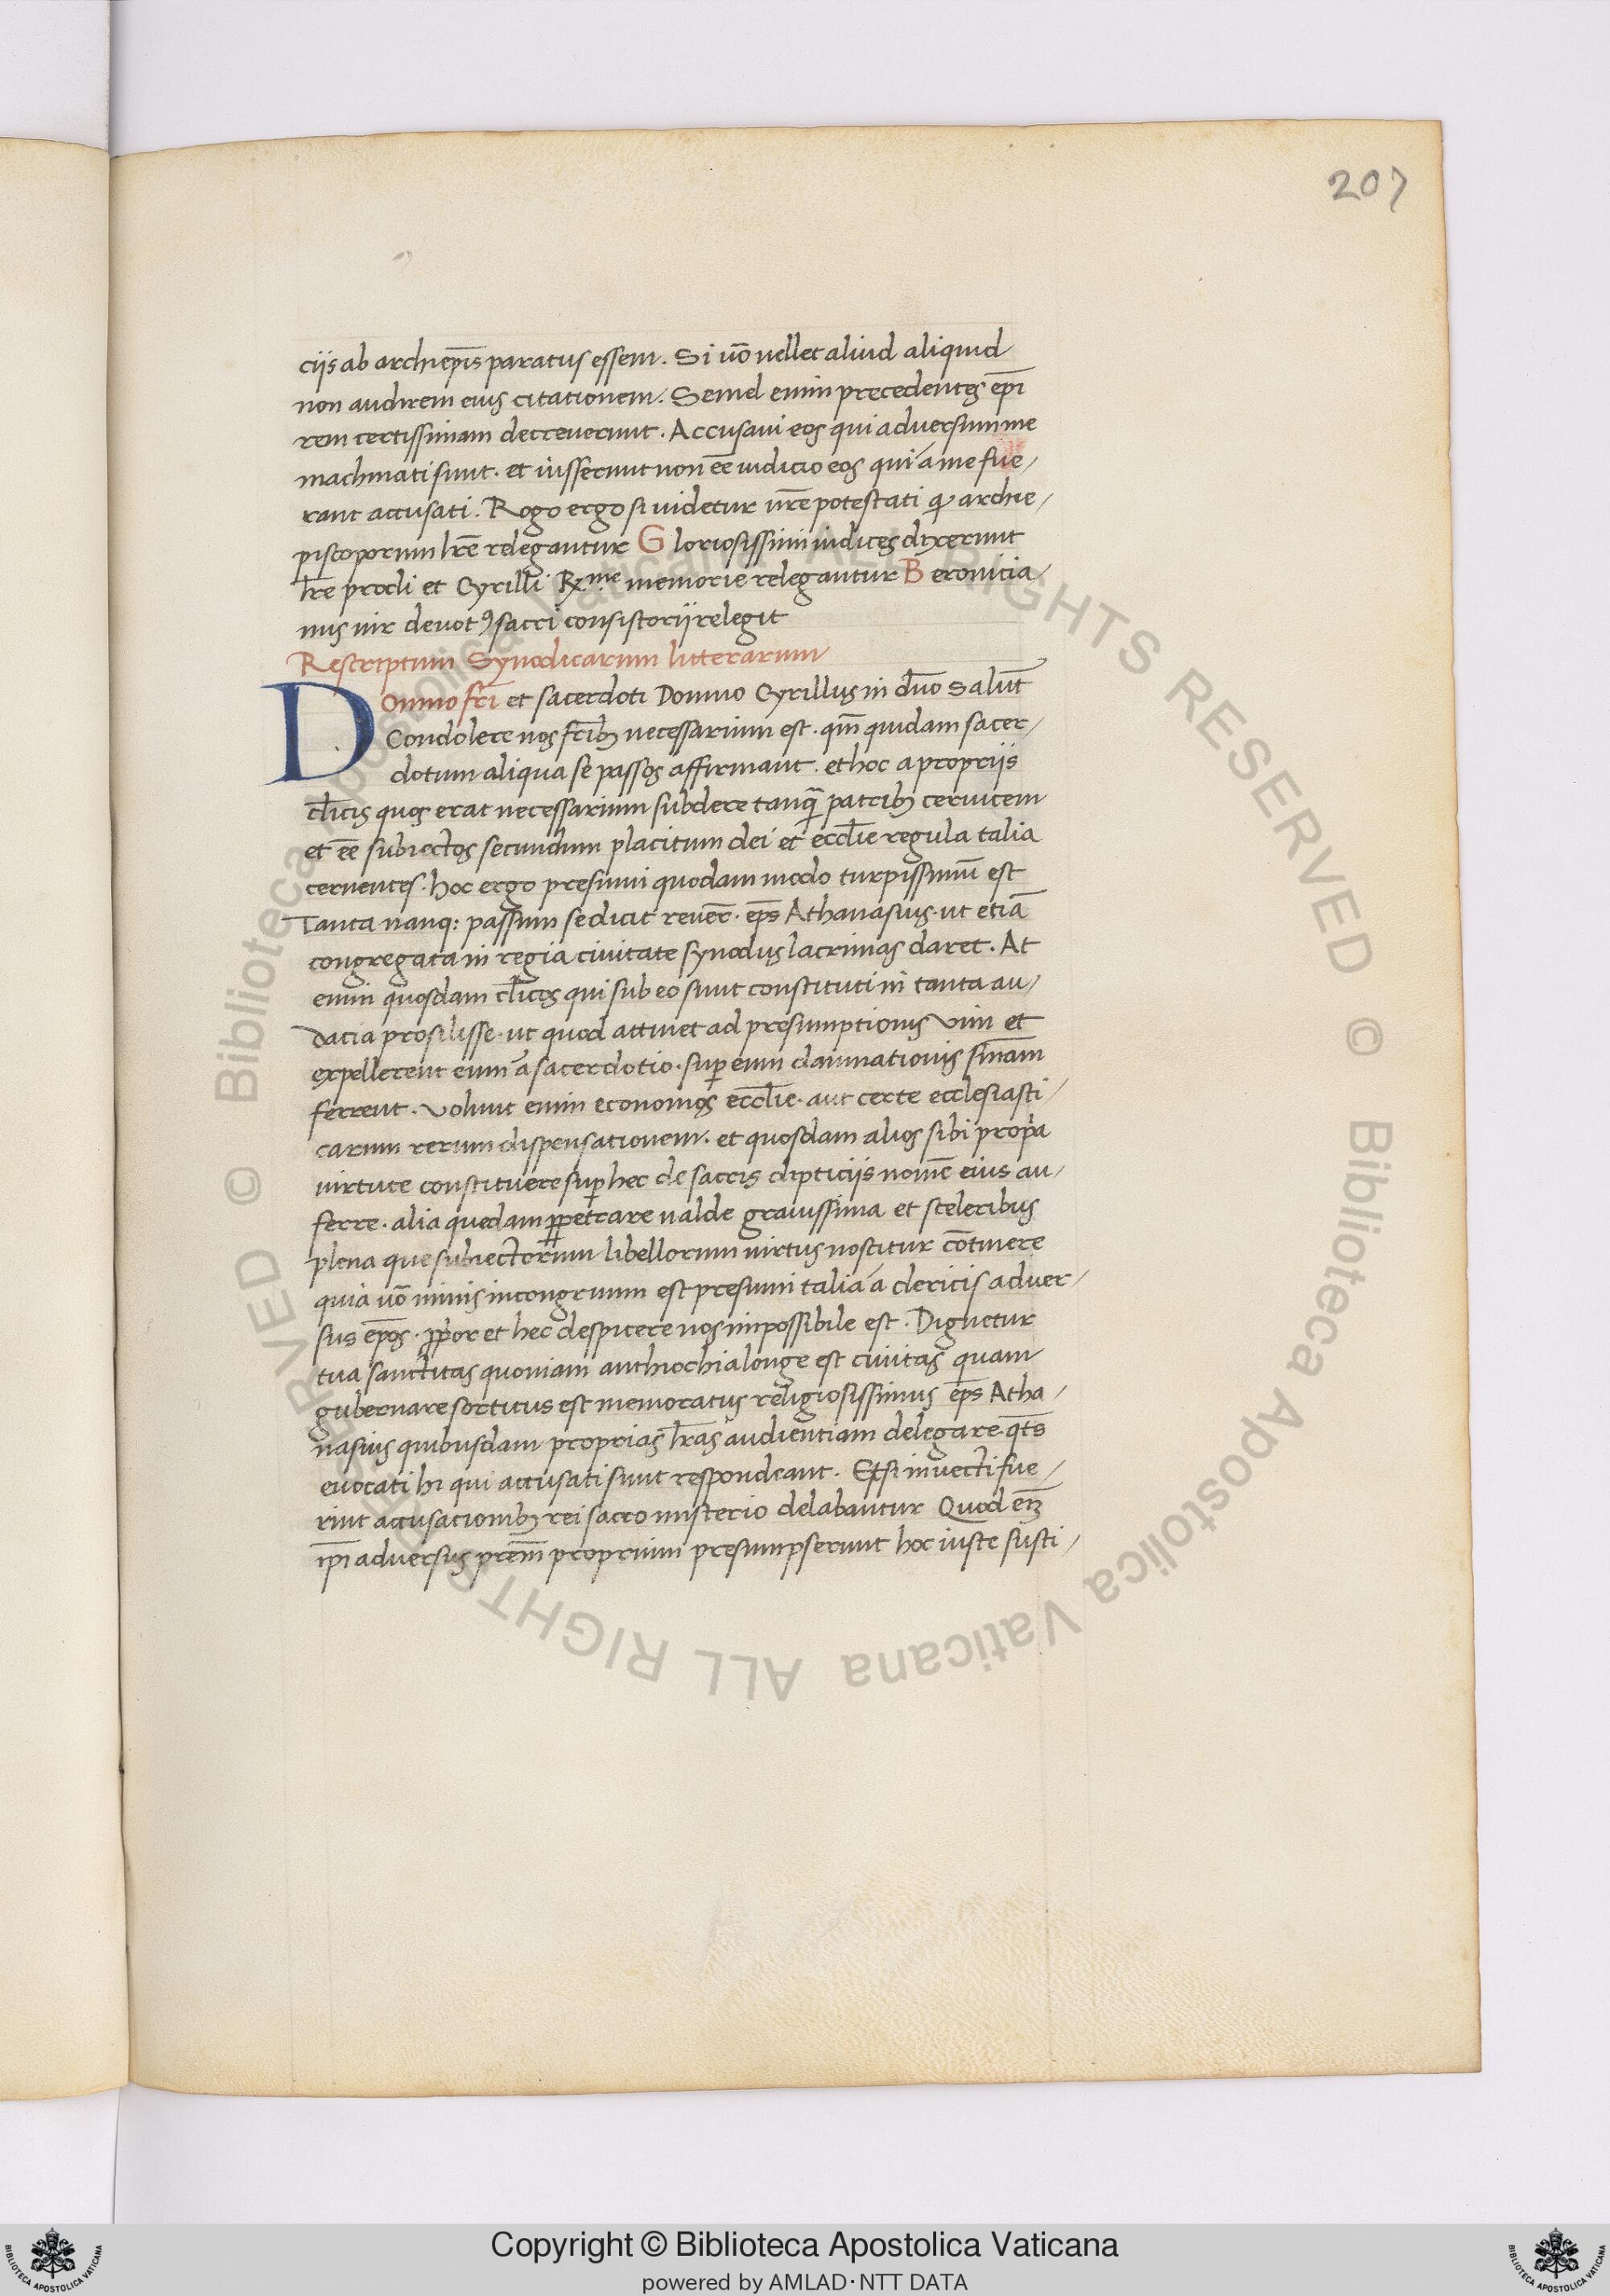 207
ciis ab archiep̄is paratus essem. Si uō uellet aliud aliquid
non audirem eius citationem. Semel enim precedentes ep̄i
rem certissimam decreuerunt. Accusaui eos qui adversum me
machinati sunt. et iusserunt non eē iudicio eos qui á me fue/
rant accusati. Rogo ergo si uidetur ūre potestati ꝙ archie/
piscoporum lr̄e relegantur Gloriosissimi iudices dixerunt
lr̄e procli et Cyrilli Rx.me memorie relegantur Beronicia/
nus uir deuotꝰ sacri consistorij relegit
Rescriptum Synodicarum litterarum
Domno fr̄i et sacerdoti Domno Cyrillus in dn̄o salut̄
Condolere nos fr̄ibꝫ necessarium est. qm̄ quidam sacer/
dotum aliqua se passos affirmant. et hoc a propriis
cl̄icis quos erat necessarium subdere tanq̄ patribꝫ ceruicem
et eē subiectos secundum placitum dei et eccl̄ie regula talia
cernentes. hoc ergo presumi quodam modo turpissimū est
Tanta nanq: passum se dicit reuer̄. ep̄s Athanasius. ut etiā
congregata in regia ciuitate synodus lacrimas daret. At
enim quosdam cl̄icos qui sub eo sunt constituti in tanta au/
dacia prosilisse. ut quod attinet ad presumptionis uim et
expellerent eum á sacerdotio. suꝑ eum damnationis sn̄iam
ferrent. Volunt enim economos eccl̄ie. aut certe ecclesiasti/
carum rerum dispensationem. et quosdam alios sibi prop̄a
uirtute constituere suꝑ hec de sacris dipticiis nomē eius au/
ferre. alia quedam ꝑpetrare ualde grauissima et sceleribus
plena que subiectorum libellorum uirtus noscitur cōtinere
quia uō nimis incongruum est presumi talia á clericis adver/
sus ep̄os. ꝓpor et hec despicere nos impossibile est. Dignetur
tua sanctitas quoniam anthiochia longe est ciuitas quam
gubernare sortitus est memoratus religiosissimus ep̄s Atha/
nasius quibusdam proprias lr̄as audientiam delegare. qt̄s
euocati hi qui accusati sunt respondeant. Et si inuecti fue/
rint accusationibꝫ rei sacro misterio delabantur Quod em̄
ip̄i adversus prēm proprium presumpserunt hoc iuste susti/
© Biblioteca Apostolica Vaticana ALL RIGHTS RESERVED © Biblioteca Apostolica Vaticana ALL RIGHTS RESERVED
Copyright © Biblioteca Apostolica Vaticana
powered by AMLAD·NTT DATA
BIBLIOTECA APOSTOLICA VATICANA
BIBLIOTECA APOSTOLICA VATICANA